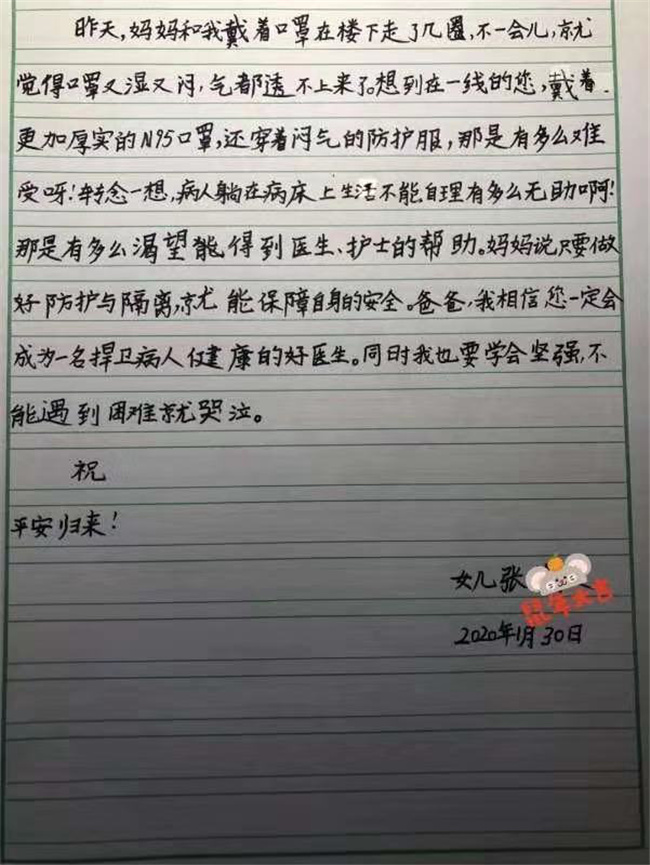 昨天,妈妈和我戴着口罩在楼下走了几圈,不一会儿,就
觉得口罩又湿又闷,气都透不上来了。想到在一线的您,戴着
更加厚实的N95口罩,还穿着闷气的防护服,那是有多么难
受呀!转念一想,病人躺在病床上生活不能自理有多么无助啊!
那是有多么渴望能得到医生、护士的帮助。妈妈说只要做
好防护与隔离,就能保障自身的安全。爸爸,我相信您一定会
成为一名捍卫病人健康的好医生。同时我也要学会坚强,不
能遇到困难就哭泣。
祝
平安归来!
女儿张
鼠年大吉
2020年1月30日